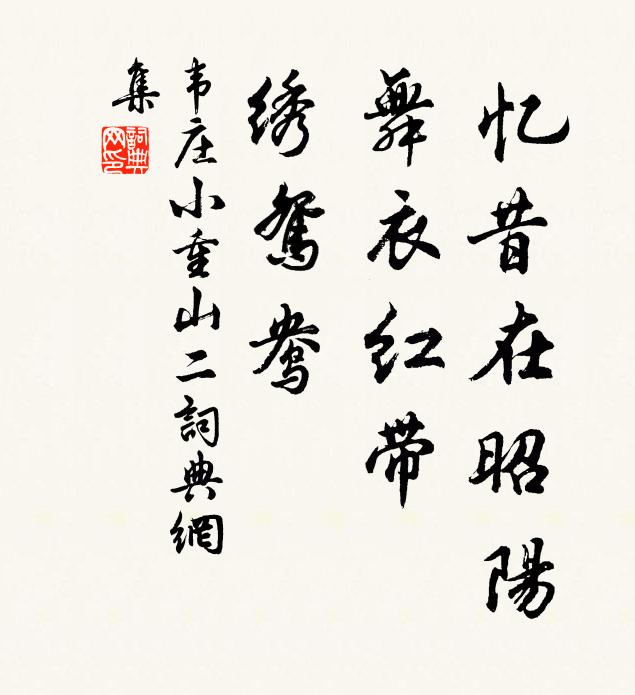 忆昔在昭陽
舞衣红带
绣鸳鸯
韦庄小重山二詞典網
集
詞典網印